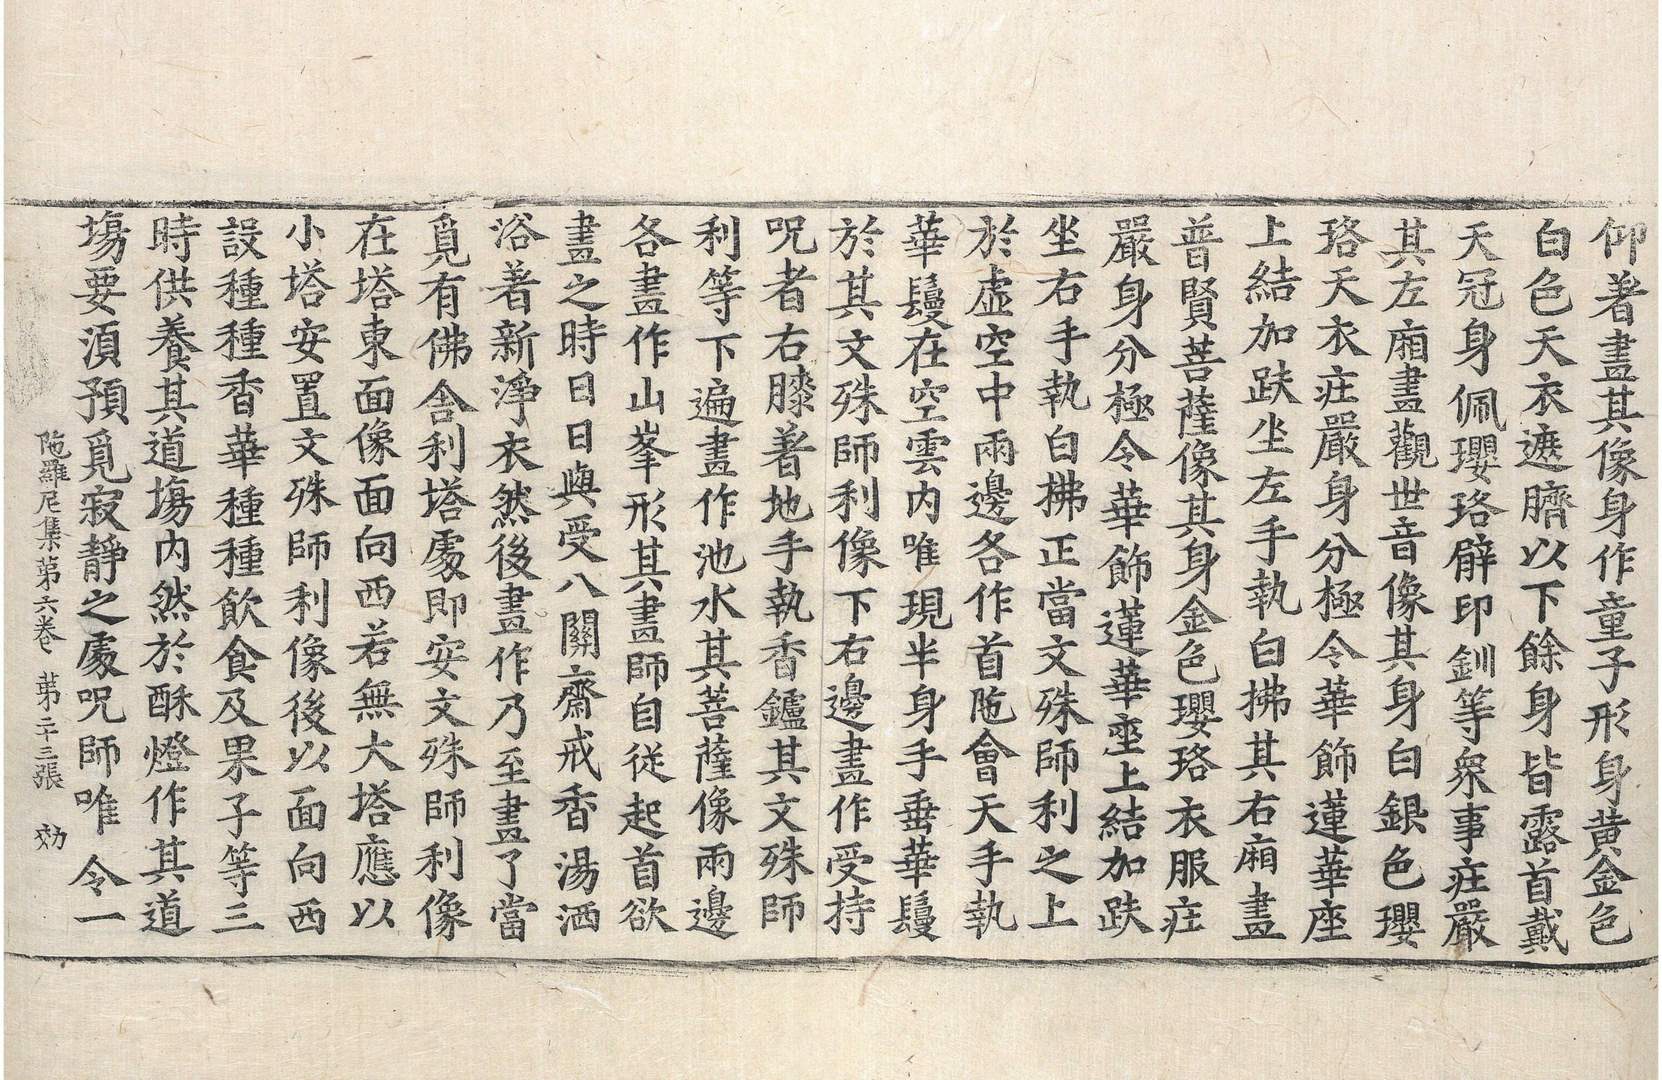 仰著畫其像身作童子形身黃金色
白色天衣遮臍以下餘身皆露首戴
天冠身佩瓔珞臂印釧等衆事莊嚴
其左廂畫觀世音像其身白銀色瓔
珞天衣莊嚴身分極令華飾蓮華座
上結加趺坐左手執白拂其右廂畫
普賢菩薩像其身金色瓔珞衣服莊
嚴身分極令華飾蓮華座上結加趺
坐右手執白拂正當文殊師利之上
於虛空中兩邊各作首陁會天手執
華鬘在空雲內唯現半身手垂華鬘
於其文殊師利像下右邊畫作受持
呪者右膝著地手執香鑪其文殊師
利等下遍畫作池水其菩薩像兩邊
各畫作山峯形其畫師自從起首欲
畫之時日日與受八關齋戒香湯洒
浴著新淨衣然後畫作乃至畫了當
覓有佛舍利塔處即安文殊師利像
在塔東面像面向西若無大塔應以
小塔安置文殊師利像後以面向西
設種種香華種種飲食及果子等三
時供養其道場內然於酥燈作其道
場要須預覓寂靜之處呪師唯令一
陁羅尼集第六卷 第二十三張 効